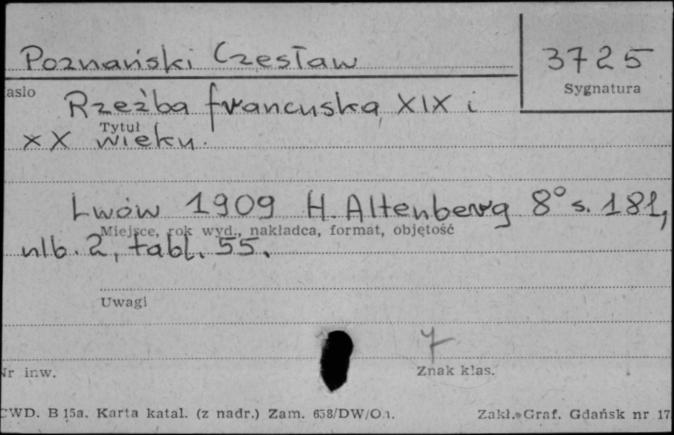 Poznański Czesław
3725
Sygnatura
asło
Rzeźba francuska XIX i
Tytuł
XX wieku.
Lwów 1909 H. Altenberg 8° s. 181,
Miejsce, rok wyd., nakładca, format, objętość
nlb. 2, tabl. 55.
Uwagi
7
Nr inw.
Znak klas.
CWD. B 15a. Karta katal. (z nadr.) Zam. 658/DW/O
Zakł. Graf. Gdańsk nr 17